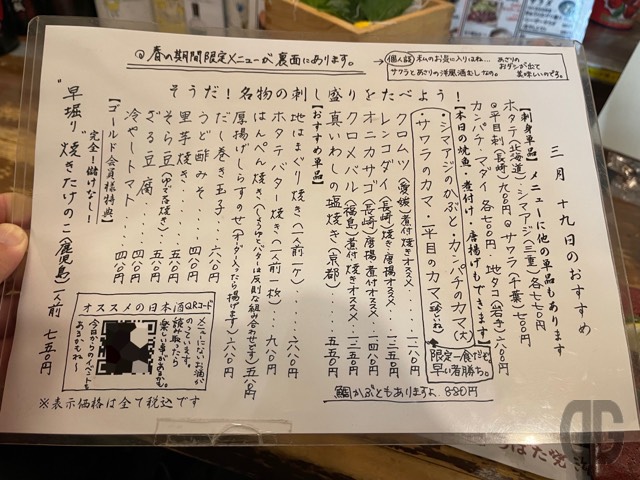 ◎春の期間限定メニューが裏面にあります。
個人話 本人のお気に入りはね…あさりの
おダシが出て
サワラとあさりの洋風酒むしなの。 美味しいのです。
そうだ！名物の刺し盛りをたべよう！
三月十九日のおすすめ
【刺身単品】メニューに他の単品もあります
ホタテ(北海道)・シマアジ(三重)各七七〇円
◎平目刺(長崎)九八〇円 ◎サワラ(千葉)七五〇円
カンパチ・マダイ 各七〇〇円・地タコ(岩き)六八〇円
【本日の焼魚・煮付け・唐揚げもできます】
・シマアジのかぶと・カンパチのカマ(大)
・サワラのカマ・平目のカマ(珍しいね)
限定一食だもの
早い者勝ち。
クロムツ(愛媛)煮付焼オススメ…
レンコダイ(長崎)焼・唐揚オススメ…
オニカサゴ(長崎)唐揚 煮付オススメ
クロメバル(福島)煮付 焼オススメ…
真いわしの塩焼き(京都)…
鯛かぶともありますよ、880円
【おすすめ単品】
地はまぐり焼き(一人前一ケ)…六八〇円
ホタテバター焼き(一人前一枚)…
はんぺん焼き(しょうゆとバターは反則な組み合わせです)五八〇円
厚揚げしらすのせ(オーダー入ったら揚げます)六八〇円
だし巻き玉子…六八〇円
うど酢みそ…四八〇円
里芋焼き…
そら豆(ゆでor焼き)…五八〇円
ざる豆腐…
冷やしトマト…四八〇円
【ゴールド会員様特典】
完全！儲けなし！
"早堀り"焼きたけのこ(鹿児島)一人前 七五〇円
オススメの日本酒QRコード
メニューにないお酒が
のっています。
読み取ったら
楽しい事があるかも。
今日からのイベントも
あるかもね〜
※表示価格は全て税込です
DG